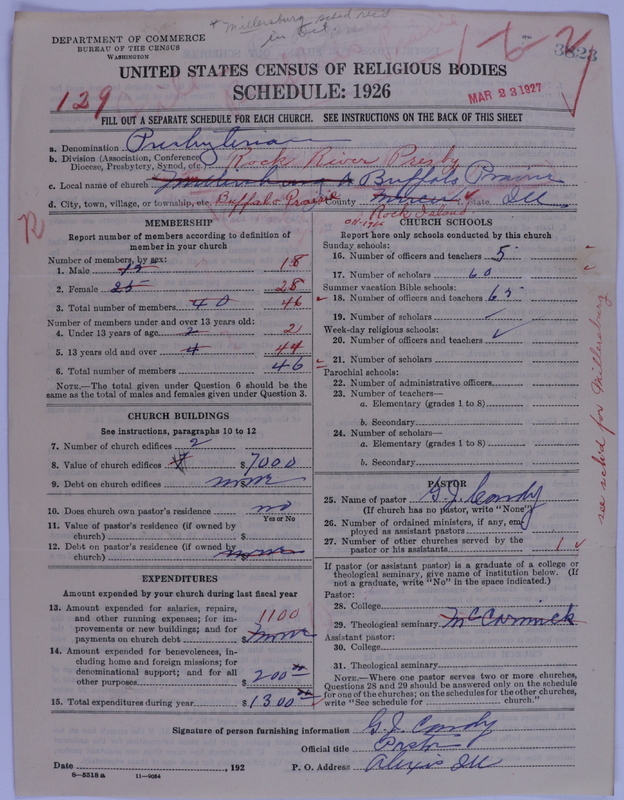 * Millersburg sched rec'd
in Oct.
DEPARTMENT OF COMMERCE
BUREAU OF THE CENSUS
WASHINGTON
1-6-2
3823
UNITED STATES CENSUS OF RELIGIOUS BODIES
SCHEDULE: 1926
129
MAR 23 1927
FILL OUT A SEPARATE SCHEDULE FOR EACH CHURCH. SEE INSTRUCTIONS ON THE BACK OF THIS SHEET
a. Denomination Presbyterian
b. Division (Association, Conference, Diocese, Presbytery, Synod, etc.) Rock River Presby
c. Local name of church Buffalo Prairie
d. City, town, village, or township, etc. Buffalo Prairie County Mercer State, Ill
Rock Island
MEMBERSHIP
Report number of members according to definition of
member in your church
Number of members, by sex:
1. Male 15 18
2. Female 25 28
3. Total number of members 40 46
Number of members under and over 13 years old:
4. Under 13 years of age 2 2
5. 13 years old and over 4 44
6. Total number of members 46
NOTE.—The total given under Question 6 should be
same as the total of males and females given under Question 3.
CHURCH BUILDINGS
See instructions, paragraphs 10 to 12
7. Number of church edifices 2
8. Value of church edifices $ 7000
9. Debt on church edifices none
10. Does church own pastor's residence no
Yes or No
11. Value of pastor's residence (if owned by
church) $
12. Debt on pastor's residence (if owned by
church) none
EXPENDITURES
Amount expended by your church during last fiscal year
13. Amount expended for salaries, repairs,
and other running expenses; for im-
provements or new buildings; and for
payments on church debt $ none 1100
14. Amount expended for benevolences, in-
cluding home and foreign missions; for
denominational support; and for all
other purposes $ 200
15. Total expenditures during year $ 1300
CHURCH SCHOOLS
Report here only schools conducted by this church
Sunday schools:
16. Number of officers and teachers 5
17. Number of scholars 60
Summer vacation Bible schools:
18. Number of officers and teachers 65
19. Number of scholars
Week-day religious schools:
20. Number of officers and teachers
21. Number of scholars
Parochial schools:
22. Number of administrative officers
23. Number of teachers—
a. Elementary (grades 1 to 8)
b. Secondary
24. Number of scholars—
a. Elementary (grades 1 to 8)
b. Secondary
PASTOR
25. Name of pastor G. J. Condy
(If church has no pastor, write "None")
26. Number of ordained ministers, if any, em-
ployed as assistant pastors
27. Number of other churches served by the
pastor or his assistants 1
If pastor (or assistant pastor) is a graduate of a college or
theological seminary, give name of institution below. (If
not a graduate, write "No" in the space indicated.)
Pastor:
28. College
29. Theological seminary McCormick
Assistant pastor:
30. College
31. Theological seminary
NOTE.—Where one pastor serves two or more churches,
Questions 28 and 29 should be answered only on the schedule
for one of the churches; on the schedules for the other churches,
write "See schedule for church."
see sched for Millersburg
Signature of person furnishing information G. J. Condy
Official title Pastor
Date , 192 P. O. Address Alexis Ill
8—5318 a 11—9054